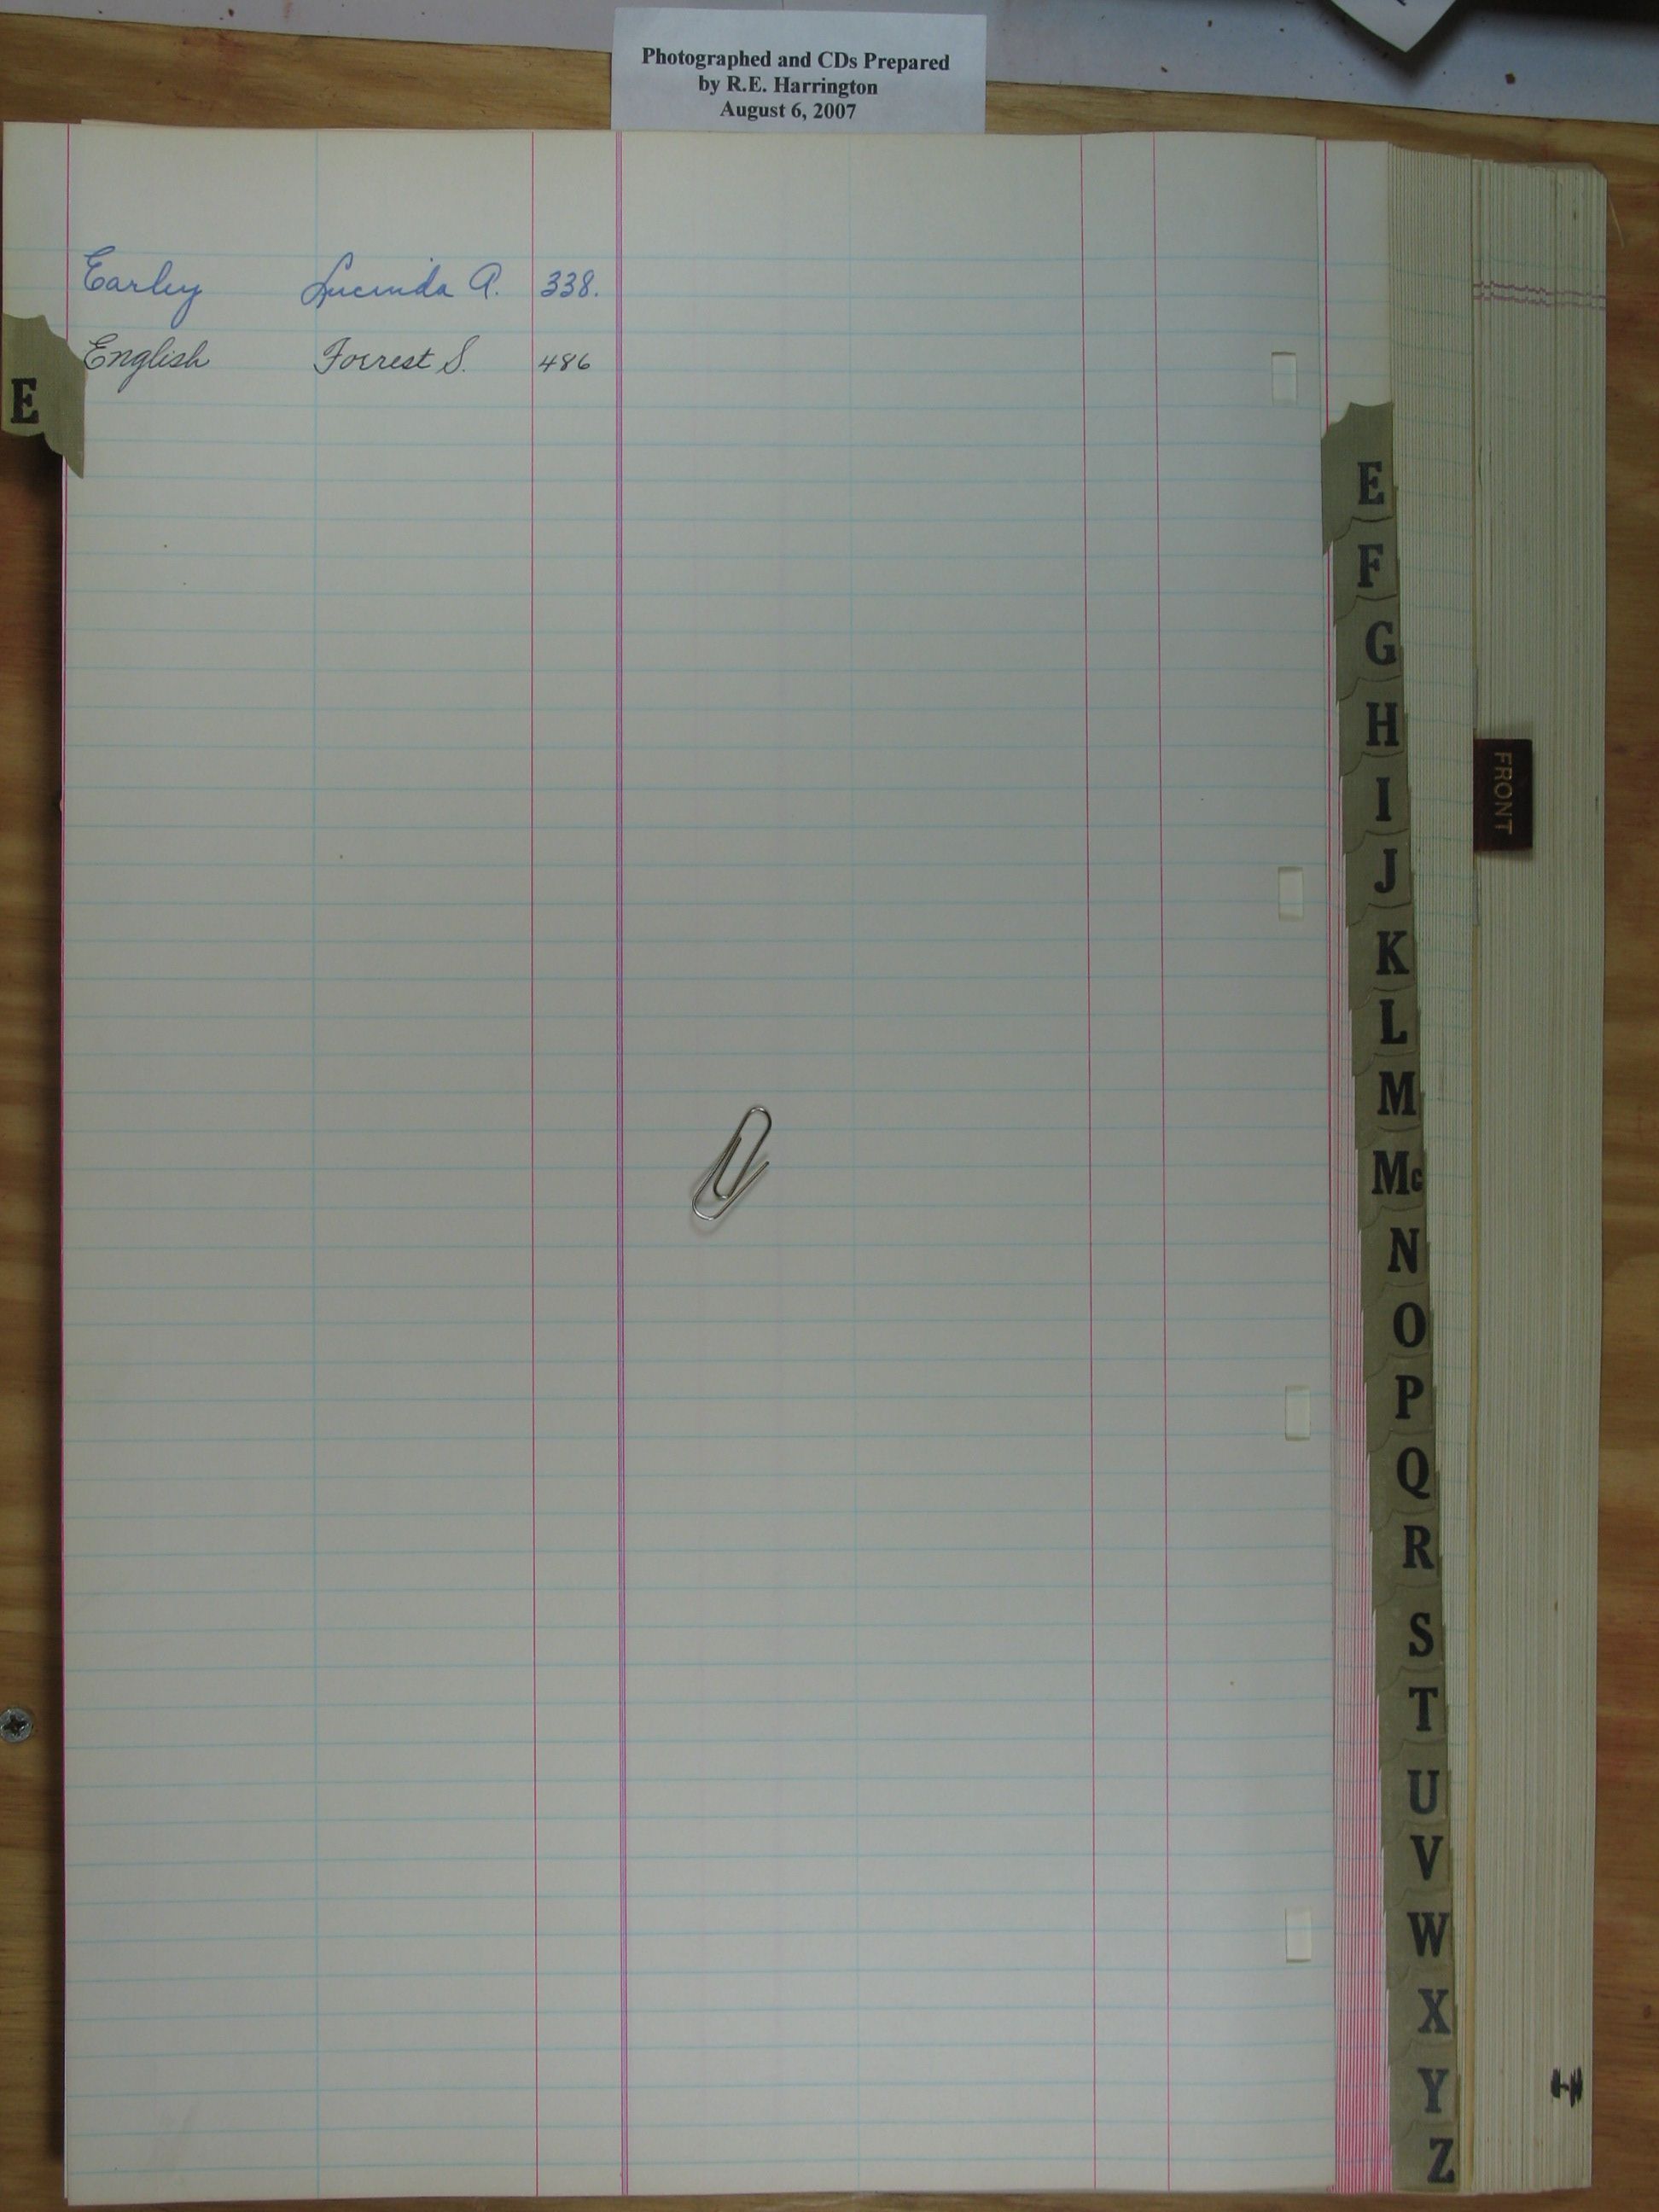 Photographed and CDs Prepared
by R.E. Harrington
August 6, 2007
Earley Lucinda A. 338.
English Forrest S. 486
E
E
F
G
H
I
J
K
L
M
Mc
N
O
P
Q
R
S
T
U
V
W
X
Y
Z
FRONT